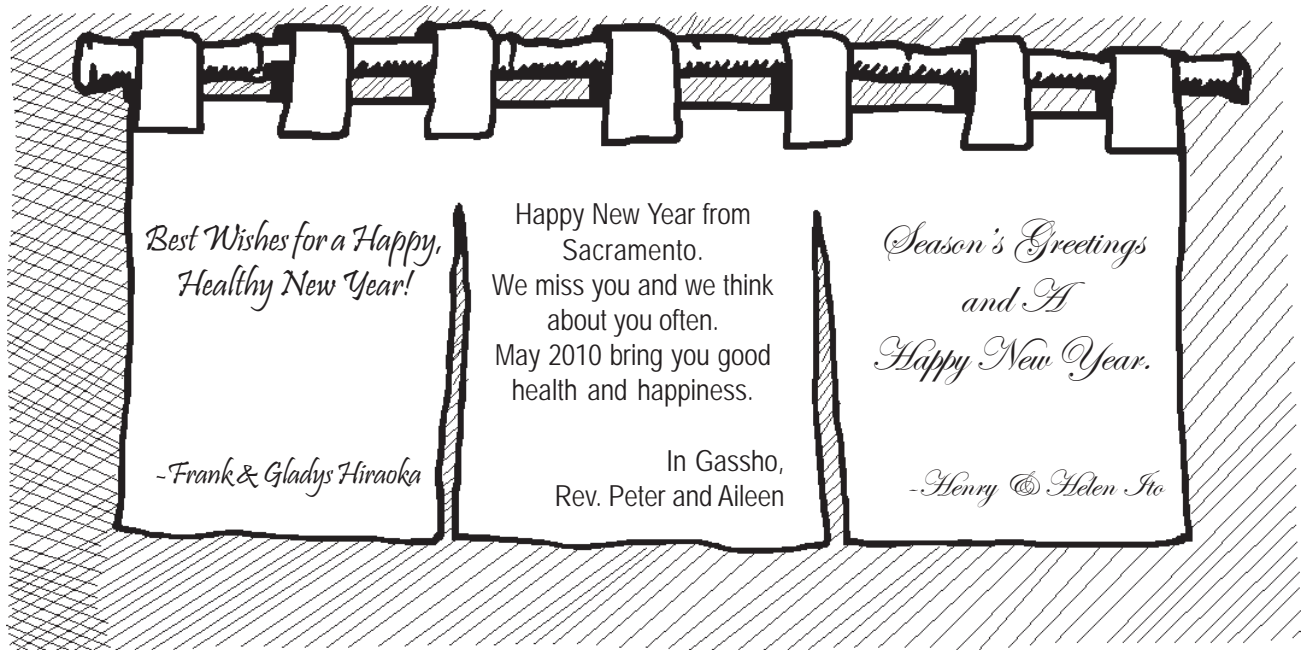 Best Wishes for a Happy,
Healthy New Year!
~Frank & Gladys Hiraoka
Happy New Year from
Sacramento.
We miss you and we think
about you often.
May 2010 bring you good
health and happiness.
In Gassho,
Rev. Peter and Aileen
Season's Greetings
and A
Happy New Year.
~Henry & Helen Ito